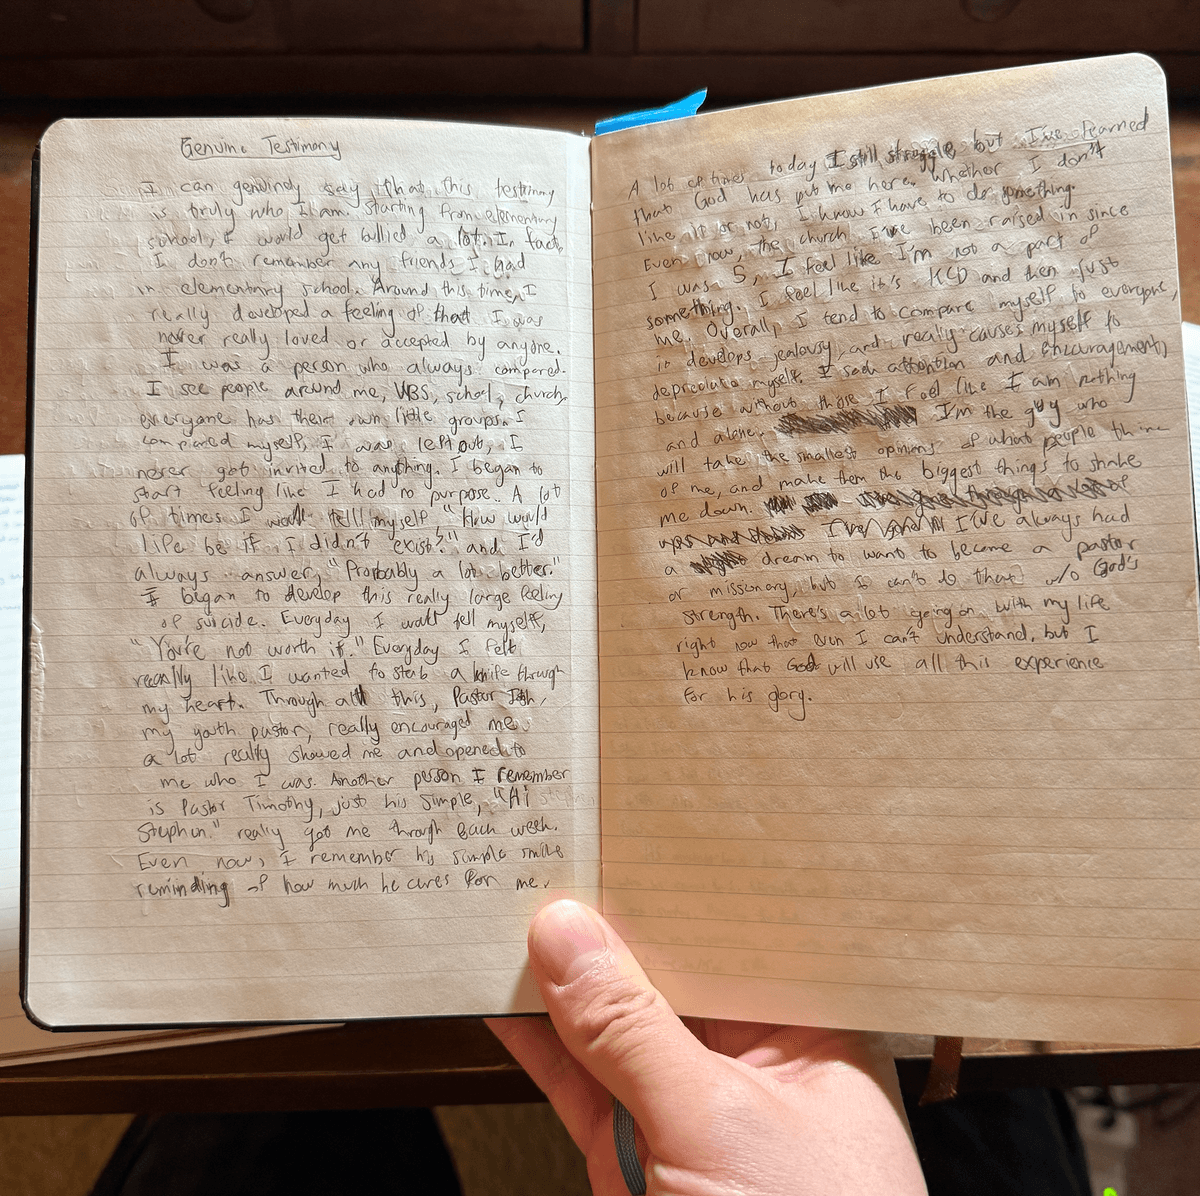 Genuine Testimony
I can genuinely say that this testimony
is truly who I am. Starting from elementary
school, I would get bullied a lot. In fact,
I don't remember any friends I had
in elementary school. Around this time, I
really developed a feeling of that I was
never really loved or accepted by anyone.
I was a person who always compared.
I see people around me, VBS, school, church,
everyone has their own little groups. I
compared myself, I was left out, I
never got invited to anything. I began to
start feeling like I had no purpose. A lot
of times I would tell myself, "How would
life be if I didn't exist?" and I'd
always answer, "Probably a lot better."
I began to develop this really large feeling
of suicide. Everyday I would tell myself,
"You're not worth it." Everyday I felt
really like I wanted to stab a knife through
my heart. Through all this, Pastor
my youth pastor, really encouraged me
a lot really showed me and opened to
me who I was. Another person I remember
is Pastor Timothy, just his simple, "Hi
Stephen." really got me through each week.
Even now, I remember his simple smile
reminding of how much he cares for me.
A lot of times today I still struggle, but I've learned
that God has put me here. Whether I don't
like it or not, I know I have to do something.
Even now, the church I've been raised in since
I was 5, I feel like I'm not a part of
something. I feel like it's KCD and then just
me. Overall, I tend to compare myself to everyone,
it develops jealousy, and really causes myself to
depreciate myself. I seek attention and encouragement,
because without those I feel like I am nothing
and alone. I'm the guy who
will take the smallest opinions of what people think
of me, and make them the biggest things to shake
me down.
ups and downs I've always had
a dream to want to become a pastor
or missionary, but I can't do that w/o God's
strength. There's a lot going on with my life
right now that even I can't understand, but I
know that God will use all this experience
for his glory.